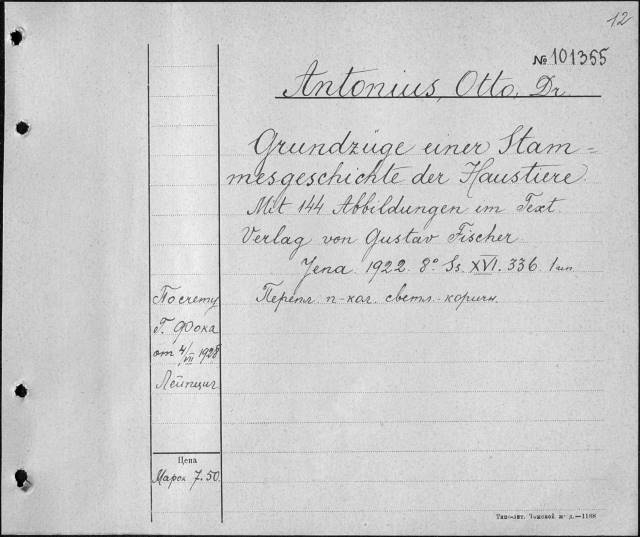 12
№ 101355
Antonius, Otto, Dr.
Grundzüge einer Stam=
mesgeschichte der Haustiere.
Mit 144 Abbildungen im Text.
Verlag von Gustav Fischer
Jena. 1922. 8° Ss. XVI. 336. 1 шп.
Перепл. п-кол. светл.-коричн.
По счету
Г. Фока
от 4/VII 1925
Лейпциг
Цена
Марок 7.50
Типо-лит. Томской ж. д.—1188